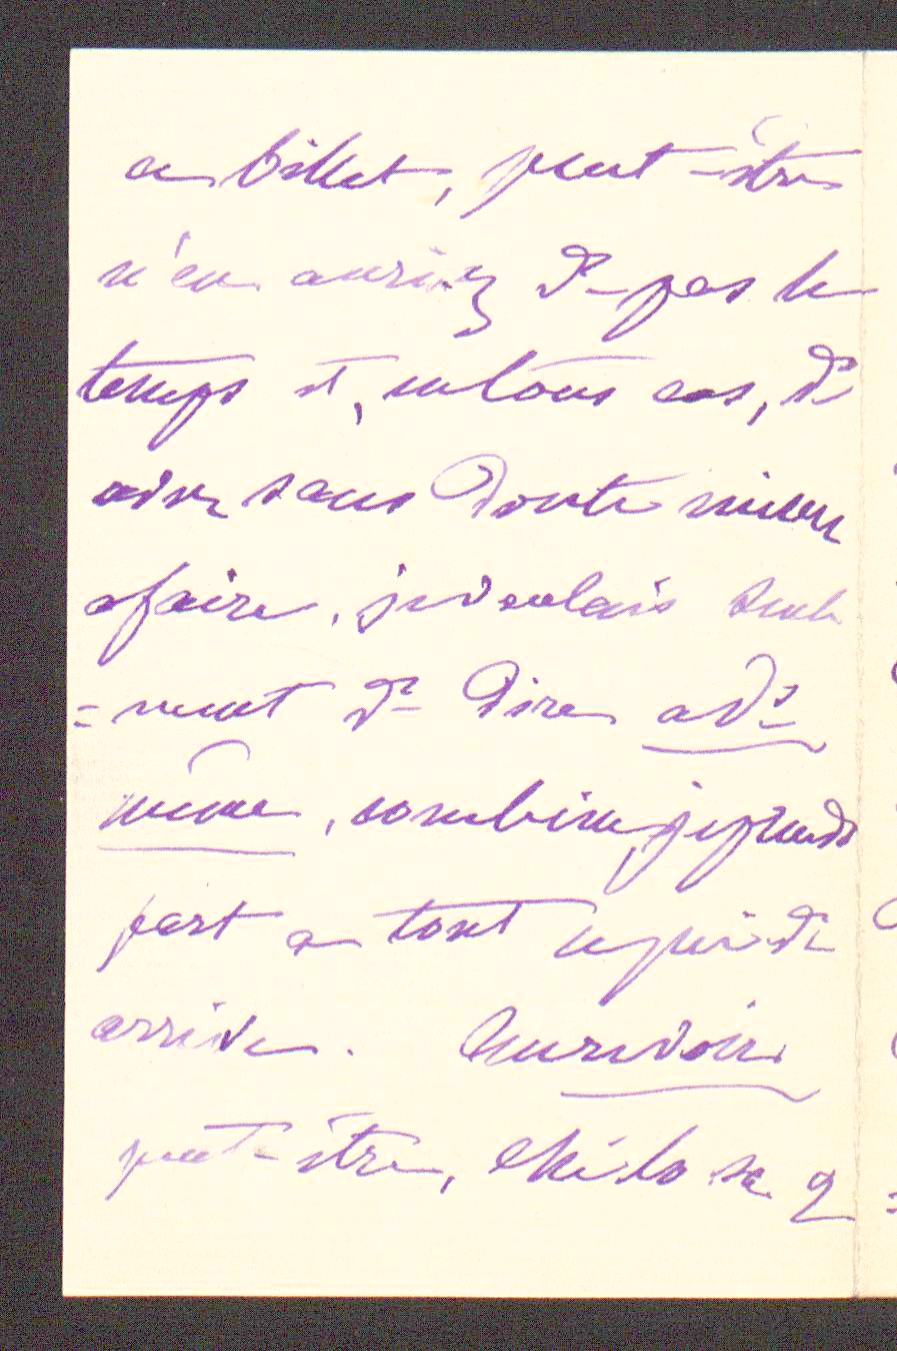 ce billet, peut-être
n'en auriez Vs pas le
temps et, en tous cas, Vs
avez sans doute mieux
a faire, je voulais seule
=ment Vs dire a Vs
même, combien je prends
part a tout ce qui Vs
arrive. Aurevoir
peut-être, chi lo sa ?